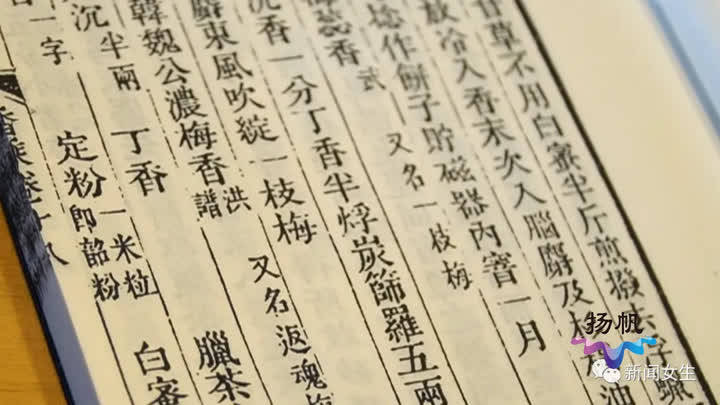 甘草不用白蜜半斤煎撥去
放冷入香末次入腦麝及
作餅子貯磁器內窨一月
香 武 又名一枝梅
沉香一分丁香半烰炭篩羅五兩
麝東風吹綻一枝梅
韓魏公濃梅香 洪譜 又名返魂梅
沉半兩 丁香 臘茶
一字 定粉一米粒即韶粉 白蜜
香乘卷十八
扬帆
新闻女生